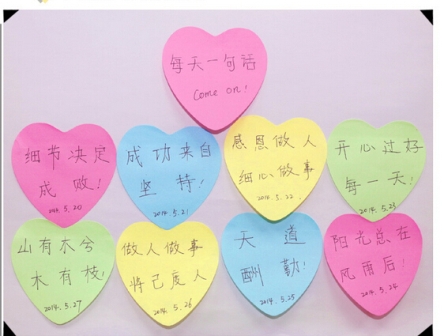 每天一句话
Come on!
细节决定
成败!
2014.5.20
成功来自
坚持!
2014.5.21
感恩做人
细心做事
2014.5.22
开心过好
每一天!
2014.5.23
山有木兮
木有枝!
2014.5.27
做人做事
将己度人
2014.5.26
天道
酬勤!
2014.5.25
阳光总在
风雨后!
2014.5.24